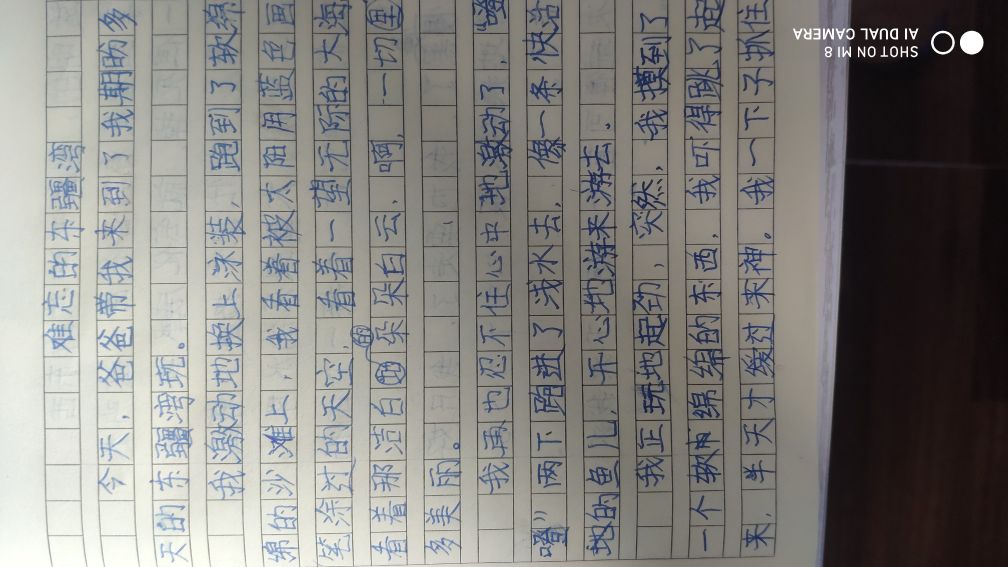 难忘的东疆湾
今天，爸爸带我来到了我期的多
天的东疆湾玩。
我激动地换上泳装，跑到了软绵
绵的沙滩上，我看着被太阳用蓝色画
笔涂过的天空，看着一望无际的大海
看着那洁白的朵朵白云，啊，一切
多美丽。
我再也忍不住心中地激动了，“噔
噔”两下跑进了浅水去，像一条快活
地的鱼儿，开心地游来游去．
我正玩地起劲，突然，我摸到了
一个软绵绵的东西，我吓得跳了起
来，半天才缓过来神。我一下子抓住
SHOT ON MI 8
AI DUAL CAMERA